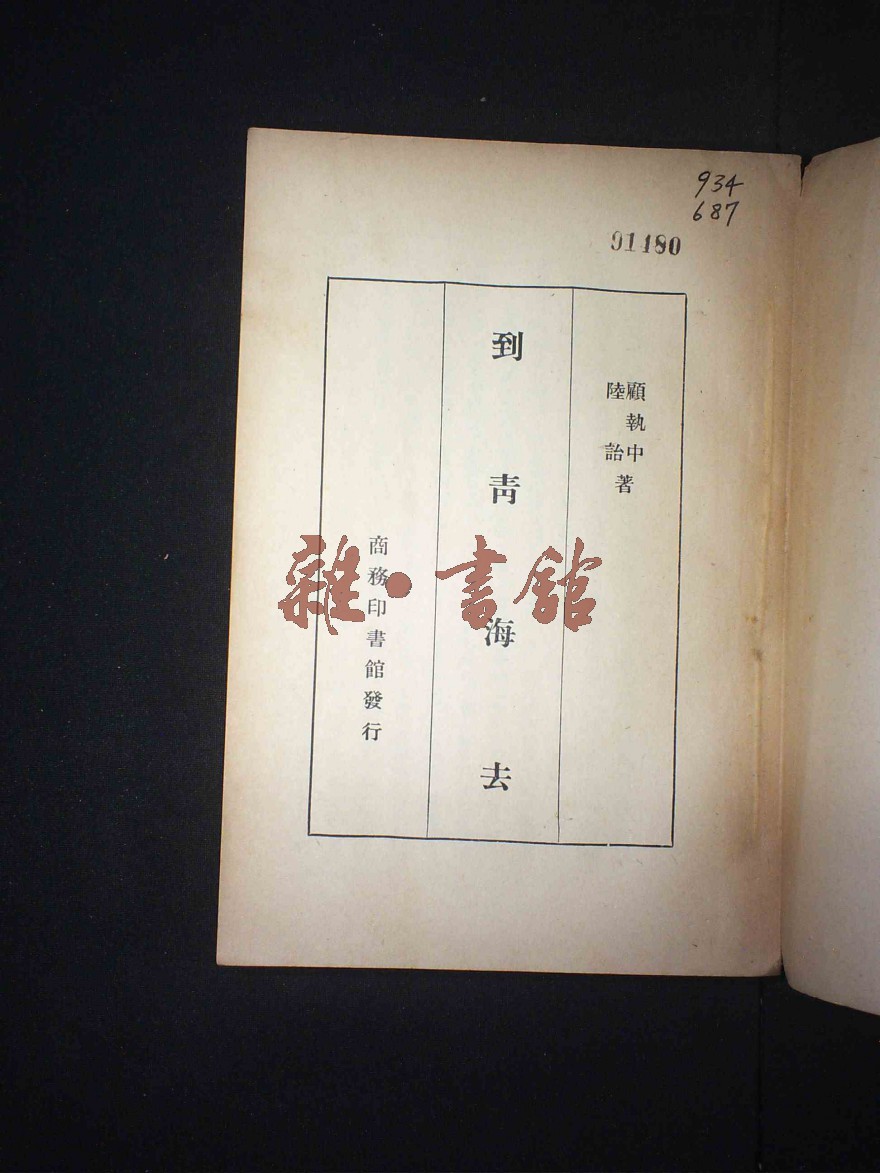 934
687
91480
顧執中
陸詒
著
到靑海去
商務印書館發行
雜·書館